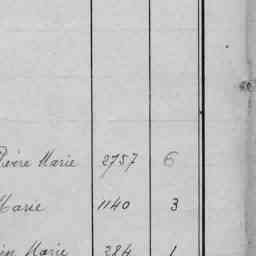 Marie 2757 6
Marie 1140 3
Marie 284 1